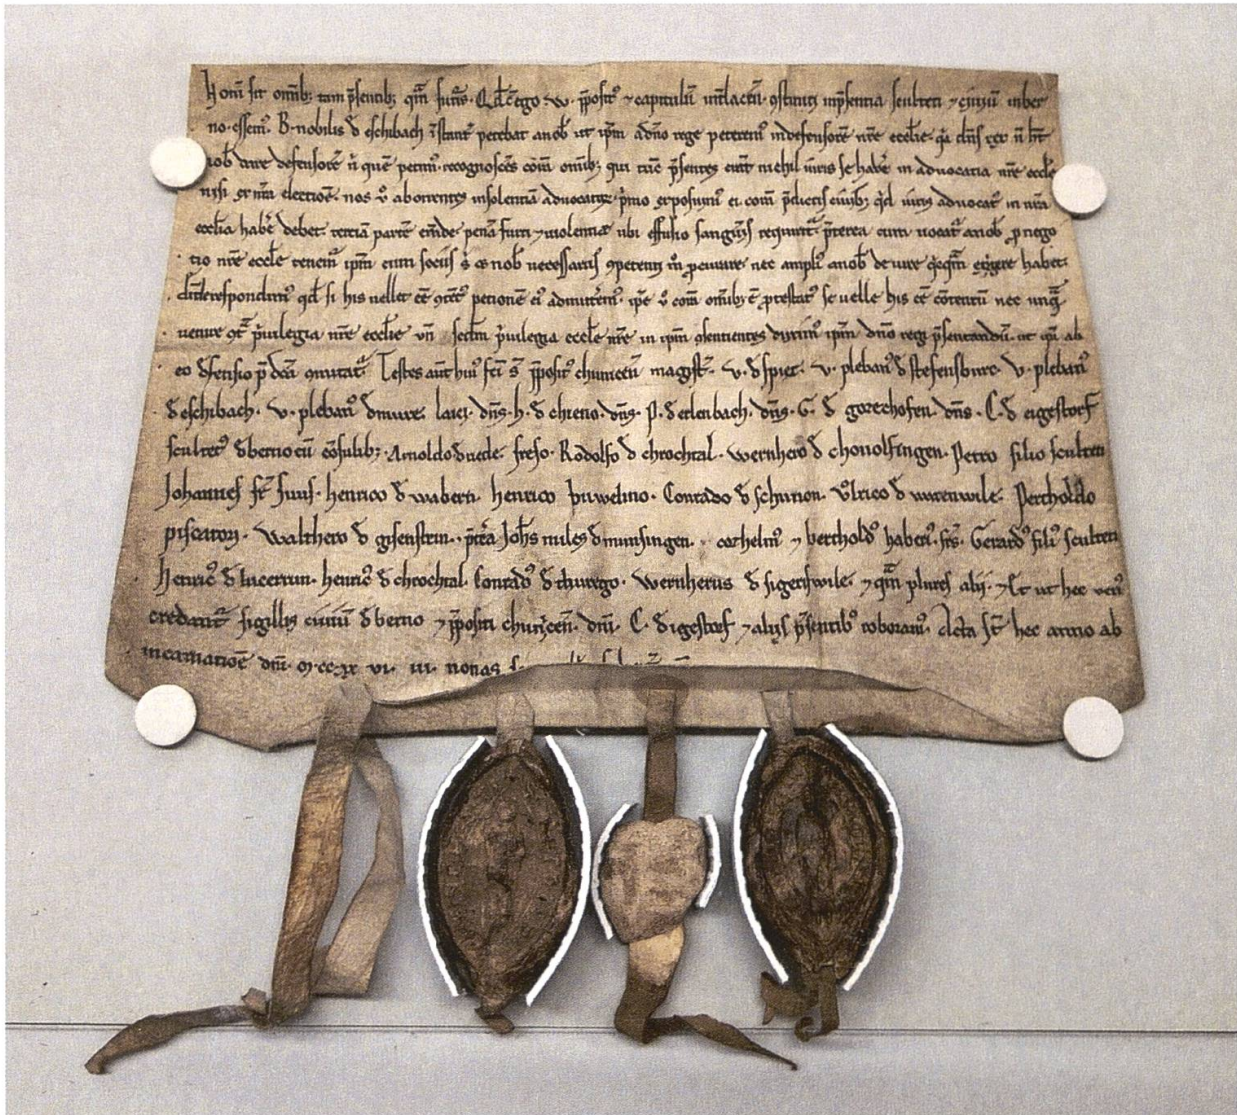 Notū sit omīb; tam p̄sentib; qm̄ futuris. Qd̄ ego .W. p̄posit⁹ ⁊ capitulū int̄lacen̄. ꝯstituti in p̄sentia sculteti ⁊ ciuiū in ber
no. essem⁹. B. nobilis đ eschibach īstant̄ petebat a nob̄ ut ip̄m a dn̄o rege peterem⁹ in defensorē nr̄e eccl̄ie. qa dn̄s rex n̄ h̄t
nob̄ dare defensorē n̄ quē petim⁹. recognoscēs corā omīb; qui tūc p̄sentes erāt nichil iuris se habē in aduocatia nr̄e eccl̄e
nisi ex nr̄a electiōe. nos v̊ aborrentes insolentiā aduocatoꝝ p̄mo exposuim⁹ ei corā p̄dictis ciuib; qd̄ iuris aduocat⁹ in nr̄a
eccl̄ia habē debet. terciā partē emđe penā furti ⁊ uiolentie ubi effusio sanguīs requirit̄ p̄terea cum uocat⁹ a nob̄ ꝓ nego
tio nr̄e eccl̄e tenem⁹ ip̄m cum sociis s̄ ex nob̄ necessariis ꝯpetenti m̊ ꝓcurare. nec ampli⁹ a nob̄ de iure qicq̄m exigere habet.
respondim⁹ qd̄ si his uellet eē ꝯtēt⁹ peticionē ei⁹ admitterem⁹. ip̄e v̊ corā omīb; ē ꝓtestat⁹ se uelle his eē cōtentū nec unq̄
uenire ꝯt̄ p̄uilegia nr̄e eccl̄ie vn̄ scd̄m p̄uilegia eccl̄e nr̄e in ip̄m ꝯsentientes duxim⁹ ip̄m dn̄o regi p̄sentandū. ut ip̄i ab
eo đfensio p̄dc̄a ꝯmittat̄ Testes aut̄ hui⁹ fc̄i s̄t p̄posit⁹ chunicen̄. magist̄. v. đ spiet. v. pleban⁹ đ stefensburc. v. pleban⁹
đ eschibach. v. pleban⁹ đ mure. laici. dn̄s. h. đ chieno. dn̄s. P. đ erlenbach. dn̄s. G. đ gorechofen. dn̄s. C. đ eigestorf
scultet⁹ đ berno cū cōsulib; Arnoldo đ riede. freso. Rodolfo đ chrochtal. Wernhero đ chonolfingen. Petro filio sculteti
Johannes fr̄ suus. henrico đ wabern. henrico buwelino. Conrado đ schurion. Vlrico đ wirenwile. Perchtoldo
piscatori. Walthero đ gisenstein. p̄t̄ea Joh̄s miles đ munsingen. cochelin⁹ ⁊ berthold⁹ haberi. frs̄. Gerard⁹ fili⁹ sculteti
Henric⁹ đ lucerrun. henric⁹ đ chrochtal. Conrad⁹ đ thurego. Wernherus đ sigerswile. ⁊ qm̄ plures alij. ⁊ Et ut hec veri⁹
credant̄ sigillis ciuiū đ berno ⁊ p̄positi chunicen̄. dn̄i. C. đ igestorf ⁊ aliis p̄sentib⁹ roboram⁹. Acta st̄ hec anno ab
incarnatiōe dn̄i. M. CC. XX. VI. III. nonas